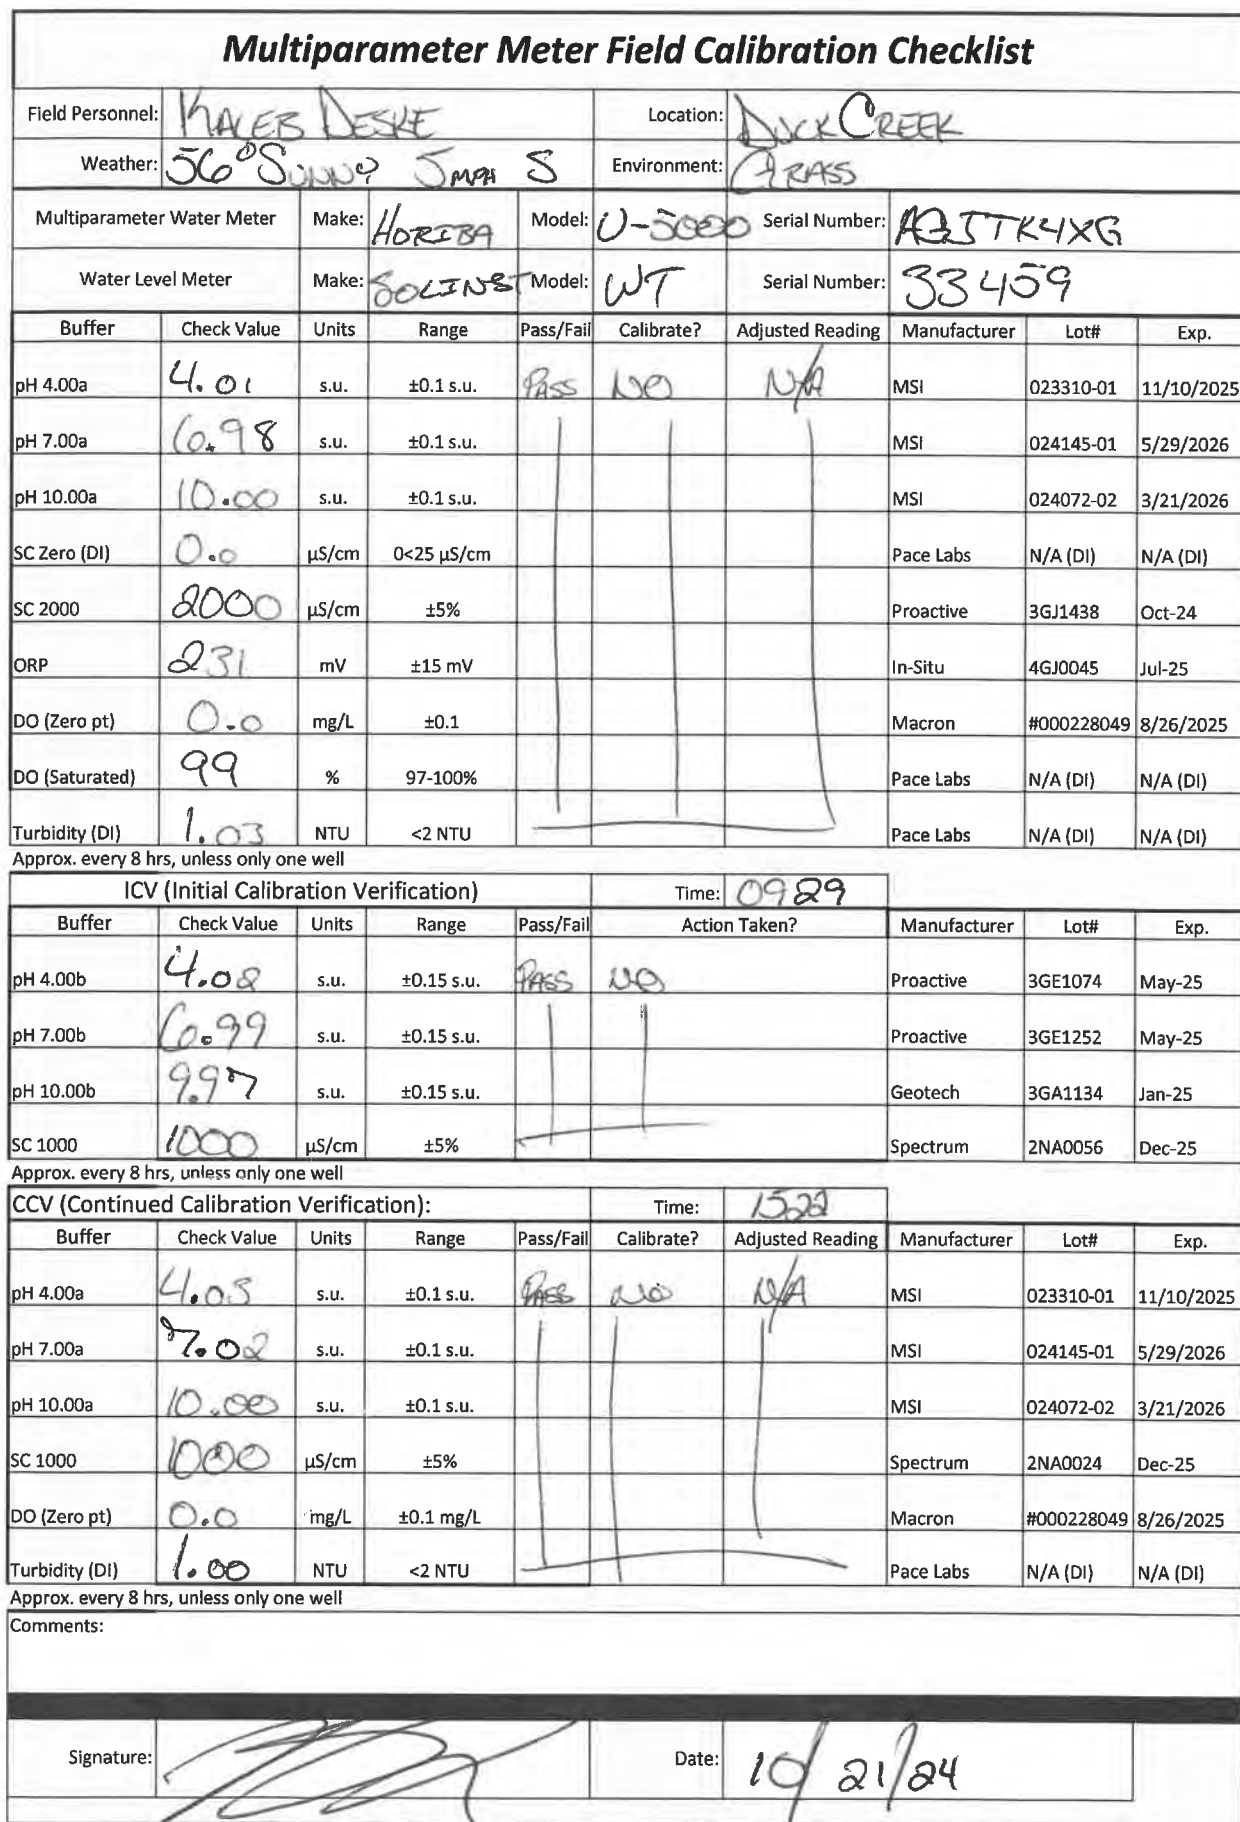 Multiparameter Meter Field Calibration Checklist
Field Personnel: KALEB DESKE Location: DUCK CREEK
Weather: 56° SUNNY 5 MPH S Environment: GRASS
Multiparameter Water Meter Make: HORIBA Model: U-5000 Serial Number:
Water Level Meter Make: SOLINST Model: WT Serial Number: 33459
Buffer Check Value Units Range Pass/Fail Calibrate? Adjusted Reading Manufacturer Lot# Exp.
pH 4.00a 4.01 s.u. ±0.1 s.u. PASS NO N/A MSI 023310-01 11/10/2025
pH 7.00a 6.98 s.u. ±0.1 s.u. MSI 024145-01 5/29/2026
pH 10.00a 10.00 s.u. ±0.1 s.u. MSI 024072-02 3/21/2026
SC Zero (DI) 0.0 µS/cm 0<25 µS/cm Pace Labs N/A (DI) N/A (DI)
SC 2000 2000 µS/cm ±5% Proactive 3GJ1438 Oct-24
ORP 231 mV ±15 mV In-Situ 4GJ0045 Jul-25
DO (Zero pt) 0.0 mg/L ±0.1 Macron #000228049 8/26/2025
DO (Saturated) 99 % 97-100% Pace Labs N/A (DI) N/A (DI)
Turbidity (DI) 1.03 NTU <2 NTU Pace Labs N/A (DI) N/A (DI)
Approx. every 8 hrs, unless only one well
ICV (Initial Calibration Verification) Time: 0929
Buffer Check Value Units Range Pass/Fail Action Taken? Manufacturer Lot# Exp.
pH 4.00b 4.02 s.u. ±0.15 s.u. PASS NO Proactive 3GE1074 May-25
pH 7.00b 6.99 s.u. ±0.15 s.u. Proactive 3GE1252 May-25
pH 10.00b 9.97 s.u. ±0.15 s.u. Geotech 3GA1134 Jan-25
SC 1000 1000 µS/cm ±5% Spectrum 2NA0056 Dec-25
Approx. every 8 hrs, unless only one well
CCV (Continued Calibration Verification): Time: 1522
Buffer Check Value Units Range Pass/Fail Calibrate? Adjusted Reading Manufacturer Lot# Exp.
pH 4.00a 4.03 s.u. ±0.1 s.u. PASS NO N/A MSI 023310-01 11/10/2025
pH 7.00a 7.02 s.u. ±0.1 s.u. MSI 024145-01 5/29/2026
pH 10.00a 10.00 s.u. ±0.1 s.u. MSI 024072-02 3/21/2026
SC 1000 1000 µS/cm ±5% Spectrum 2NA0024 Dec-25
DO (Zero pt) 0.0 mg/L ±0.1 mg/L Macron #000228049 8/26/2025
Turbidity (DI) 1.00 NTU <2 NTU Pace Labs N/A (DI) N/A (DI)
Approx. every 8 hrs, unless only one well
Comments:
Signature: Date: 10/21/24